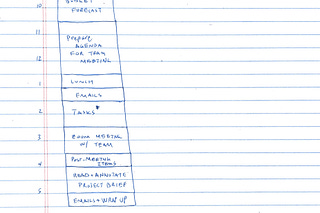 10
FORECAST
11
Prepare
AGENDA
FOR TEAM
MEETING
12
LUNCH
1
EMAILS
2
TASKS*
3
ZOOM MEETING
W/ TEAM
4
POST-MEETING
ITEMS
READ + ANNOTATE
5
PROJECT BRIEF
6
EMAILS + WRAP UP